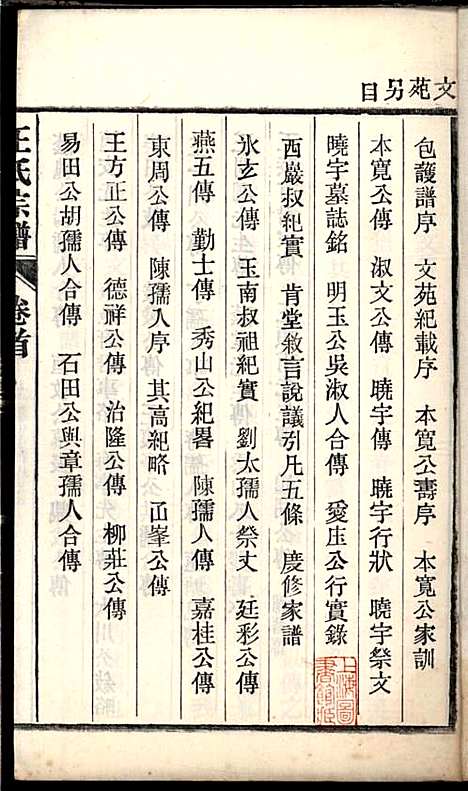 文苑另目
包護譜序 文苑紀載序 本寬公壽序 本寬公家訓
本寬公傳 淑文公傳 曉宇傳 曉宇行狀 曉宇祭文
曉宇墓誌銘 明玉公吳淑人合傳 愛庄公行實錄
西巖叔紀實 肯堂敘言說議引凡五條 慶修家譜
氷玄公傳 玉南叔祖紀實 劉太孺人祭文 廷彩公傳
燕五傳 勤士傳 秀山公紀畧 陳孺人傳 嘉桂公傳
東周公傳 陳孺人序 其高紀略 正峯公傳
王方正公傳 德祥公傳 治隆公傳 柳莊公傳
易田公胡孺人合傳 石田公與章孺人合傳
王氏宗譜 卷首
上海圖書館藏